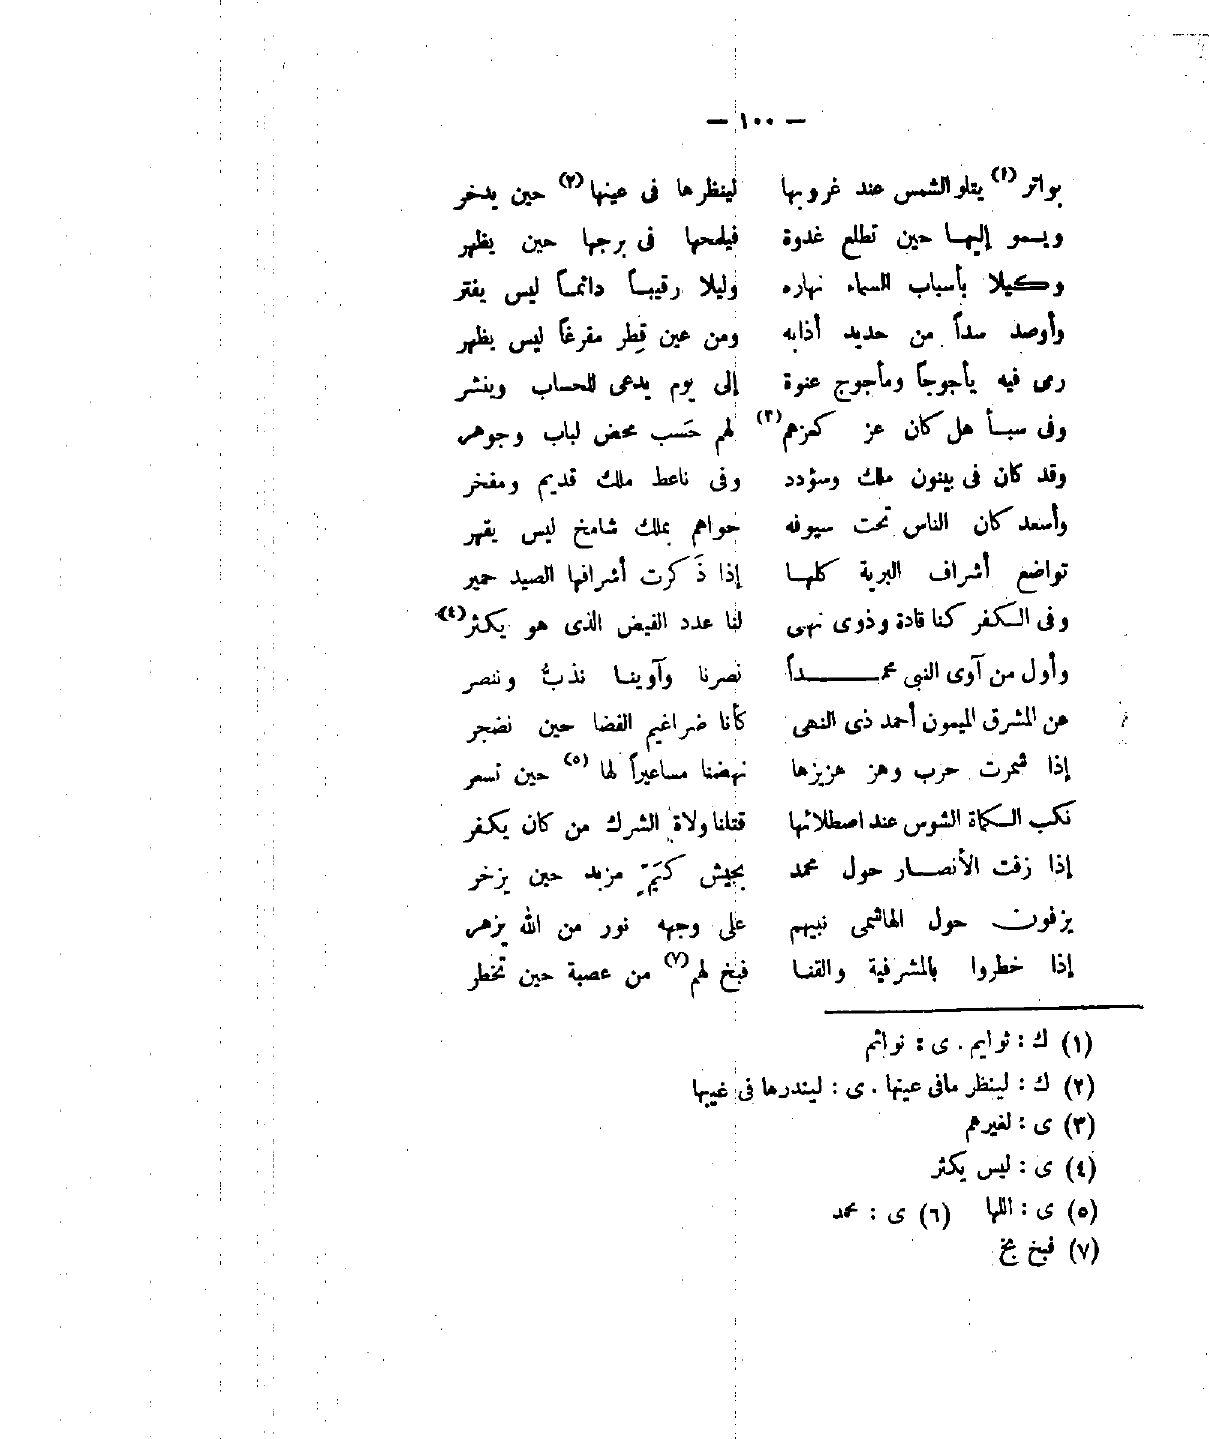 — ١٠٠ —
بواتر (١) يتلو الشمس عند غروبها لينظرها فى عينها (٢) حين يدخر
ويسمو إليها حين تطلع غدوة فيلمحها فى برجها حين يظهر
وكيلا بأسباب السماء نهاره وليلا رقيباً دائماً ليس يفتر
وأوصد سداً من حديد أذابه ومن عين قِطر مفرغاً ليس يظهر
رمى فيه يأجوجاً ومأجوج عنوة إلى يوم يدعى للحساب وينشر
وفى سبأ هل كان عز كعزهم (٣) لهم حَسب محض لباب وجوهر
وقد كان فى بينون ملك وسؤدد وفى ناعط ملك قديم ومفخر
وأسعد كان الناس تحت سيوفه حواهم بملك شامخ ليس يقهر
تواضع أشراف البرية كلها إذا ذَكرت أشرافها الصيد حمير
وفى الكفر كنا قادة وذوى نهى لنا عدد الفيض الذى هو يكثر (٤)
وأول من آوى النبى محمداً نصرنا وآوينا نذبُّ وننصر
عن المشرق الميمون أحمد ذى النهى كأنا ضراغيم الفضا حين نضجر
إذا شمرت حرب وهز هزيزها نهضنا مساعيراً لها (٥) حين تسعر
نكب الكماة الشوس عند اصطلائها قتلنا ولاة الشرك من كان يكفر
إذا زفت الأنصار حول محمد بجيش كيَمٍّ مزبد حين يزخر
يزفون حول الهاشمى نبيهم على وجهه نور من الله يزهر
إذا خطروا بالمشرفية والقنا فبخ لهم (٧) من عصبة حين تخطر
(١) ك : ثوايم . ى : نوائم
(٢) ك : لينظر مافى عينها . ى : ليندرها فى غيبها
(٣) ى : لغيرهم
(٤) ى : ليس يكثر
(٥) ى : اللها (٦) ى : محمد
(٧) فبخ بخ